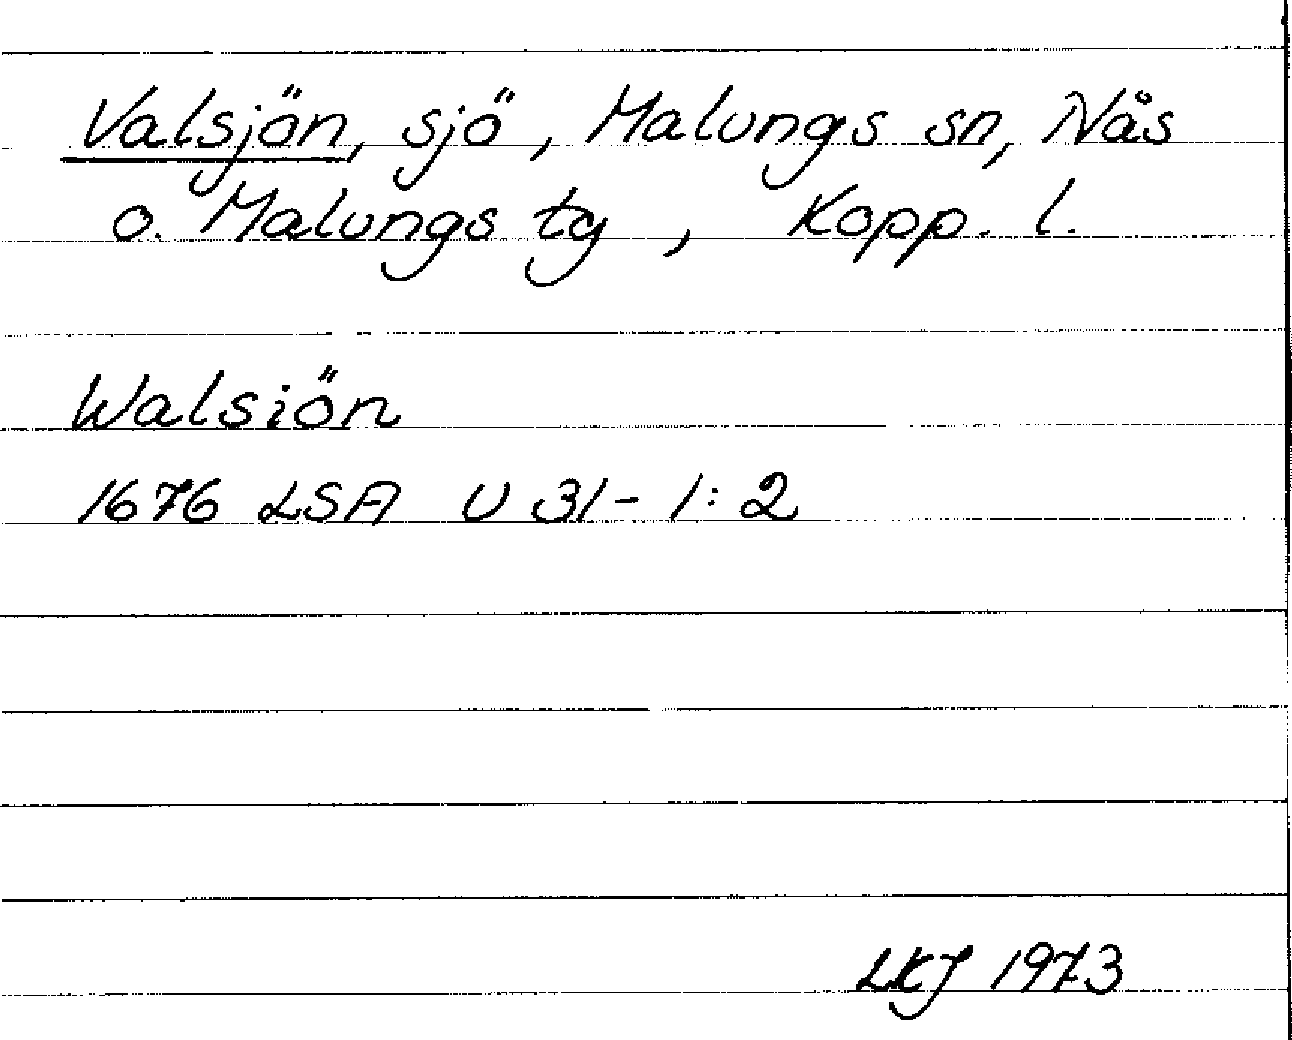 Valsjön, sjö, Malungs sn, Nås
o. Malungs tg, Kopp. l.
Walsiön
1676 LSA U 31-1:2
LKJ 1973